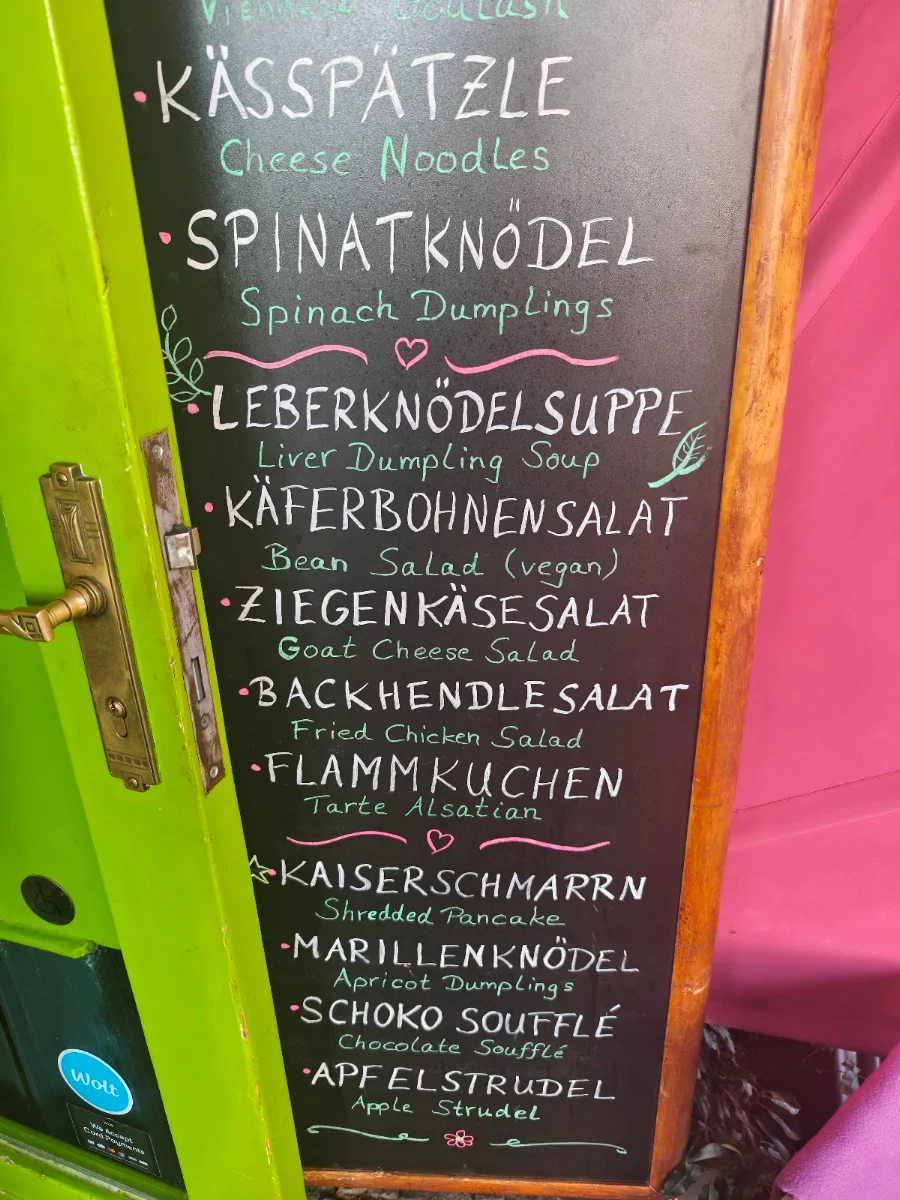 Viennese Goulash
KÄSSPÄTZLE
Cheese Noodles
SPINATKNÖDEL
Spinach Dumplings
LEBERKNÖDELSUPPE
Liver Dumpling Soup
KÄFERBOHNENSALAT
Bean Salad (vegan)
ZIEGENKÄSESALAT
Goat Cheese Salad
BACKHENDLESALAT
Fried Chicken Salad
FLAMMKUCHEN
Tarte Alsatian
KAISERSCHMARRN
Shredded Pancake
MARILLENKNÖDEL
Apricot Dumplings
SCHOKO SOUFFLÉ
Chocolate Soufflé
APFELSTRUDEL
Apple Strudel
Wolt
We Accept
Card Payments